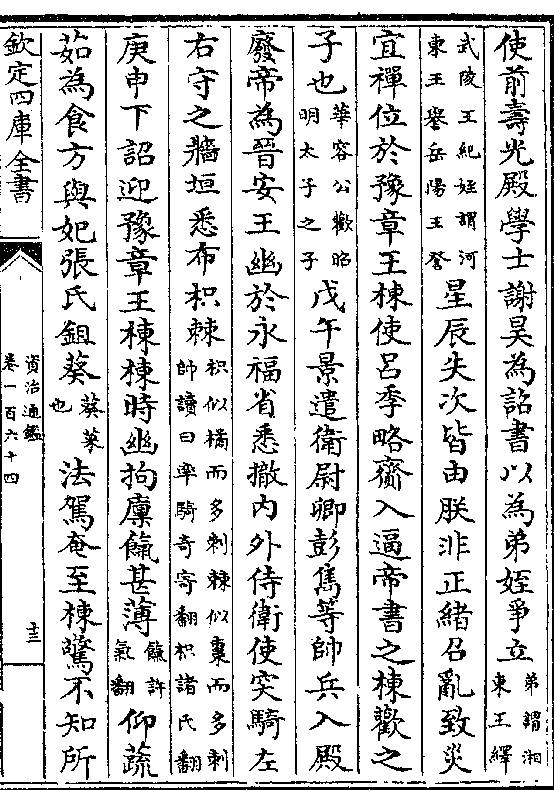 使前壽光殿學士謝昊為詔書以為弟姪爭立弟謂湘東王繹
武陵王紀姪謂河東王譽岳陽王詧星辰失次皆由朕非正緒召亂致災
宜禪位於豫章王棟使呂季略齎入逼帝書之棟歡之
子也華容公歡昭明太子之子戊午景遣衛尉卿彭雋等帥兵入殿
廢帝為晉安王幽於永福省悉撤內外侍衛使突騎左
右守之牆垣悉布枳棘枳似橘而多刺棘似棗而多刺帥讀曰率騎奇寄翻枳諸氏翻
庚申下詔迎豫章王棟棟時幽拘廩餼甚薄餼許氣翻仰蔬
茹為食方與妃張氏鉏葵葵菜也法駕奄至棟驚不知所
欽定四庫全書
資治通鑑
卷一百六十四
十三